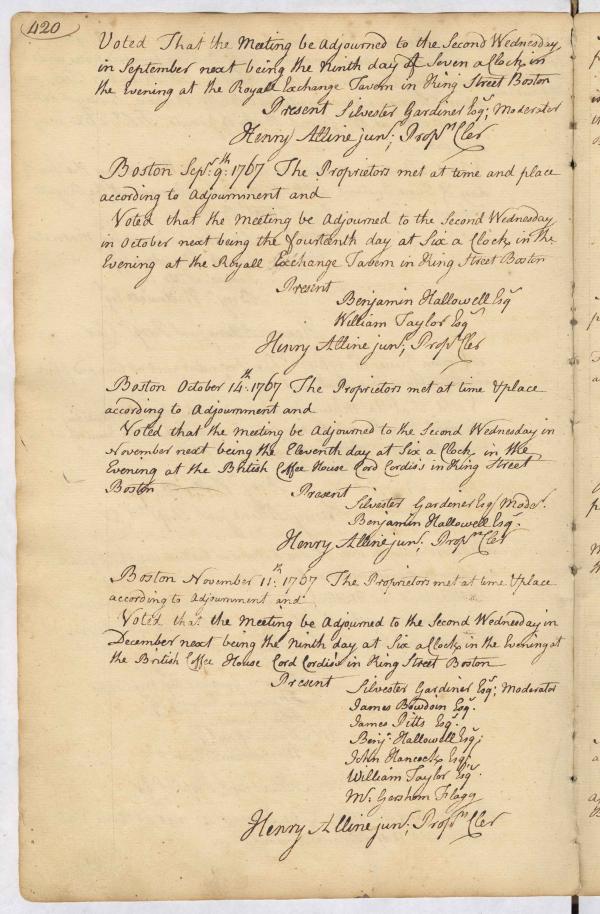 420
Voted That the Meeting be Adjourned to the Second Wednesday
in September next being the Ninth day of Seven a Clock in
the Evening at the Royall Exchange Tavern in King Street Boston
Present Silvester Gardiner Esqr; Moderator
Henry Alline junr; Proprs Cler
Boston Sepr. 9th: 1767 The Proprietors met at time and place
according to Adjournment and
Voted that the Meeting be Adjourned to the Second Wednesday
in October next being the fourteenth day at Six a Clock in the
Evening at the Royall Exchange Tavern in King Street Boston
Present
Benjamin Hallowell Esqr
William Taylor Esqr
Henry Alline junr; Proprs Cler
Boston October 14th: 1767 The Proprietors met at time & place
according to Adjournment and
Voted that the Meeting be Adjourned to the Second Wednesday in
November next being the Eleventh day at Six a Clock in the
Evening at the British Coffee House Cord Cordis's in King Street
Boston Present
Silvester Gardiner Esqr Moder.
Benjamin Hallowell Esqr.
Henry Alline junr; Proprs Cler
Boston November 11th: 1767 The Proprietors met at time & place
according to Adjournment and
Voted that the Meeting be Adjourned to the Second Wednesday in
December next being the Ninth day at Six a Clock in the Evening at
the British Coffee House Cord Cordiss in King Street Boston
Present Silvester Gardiner Esqr; Moderator
James Bowdoin Esqr.
James Pitts Esqr.
Benj. Hallowell Esqr;
John Hancock Esqr
William Taylor Esqr.
Mr. Gershom Flagg
Henry Alline junr; Proprs Cler